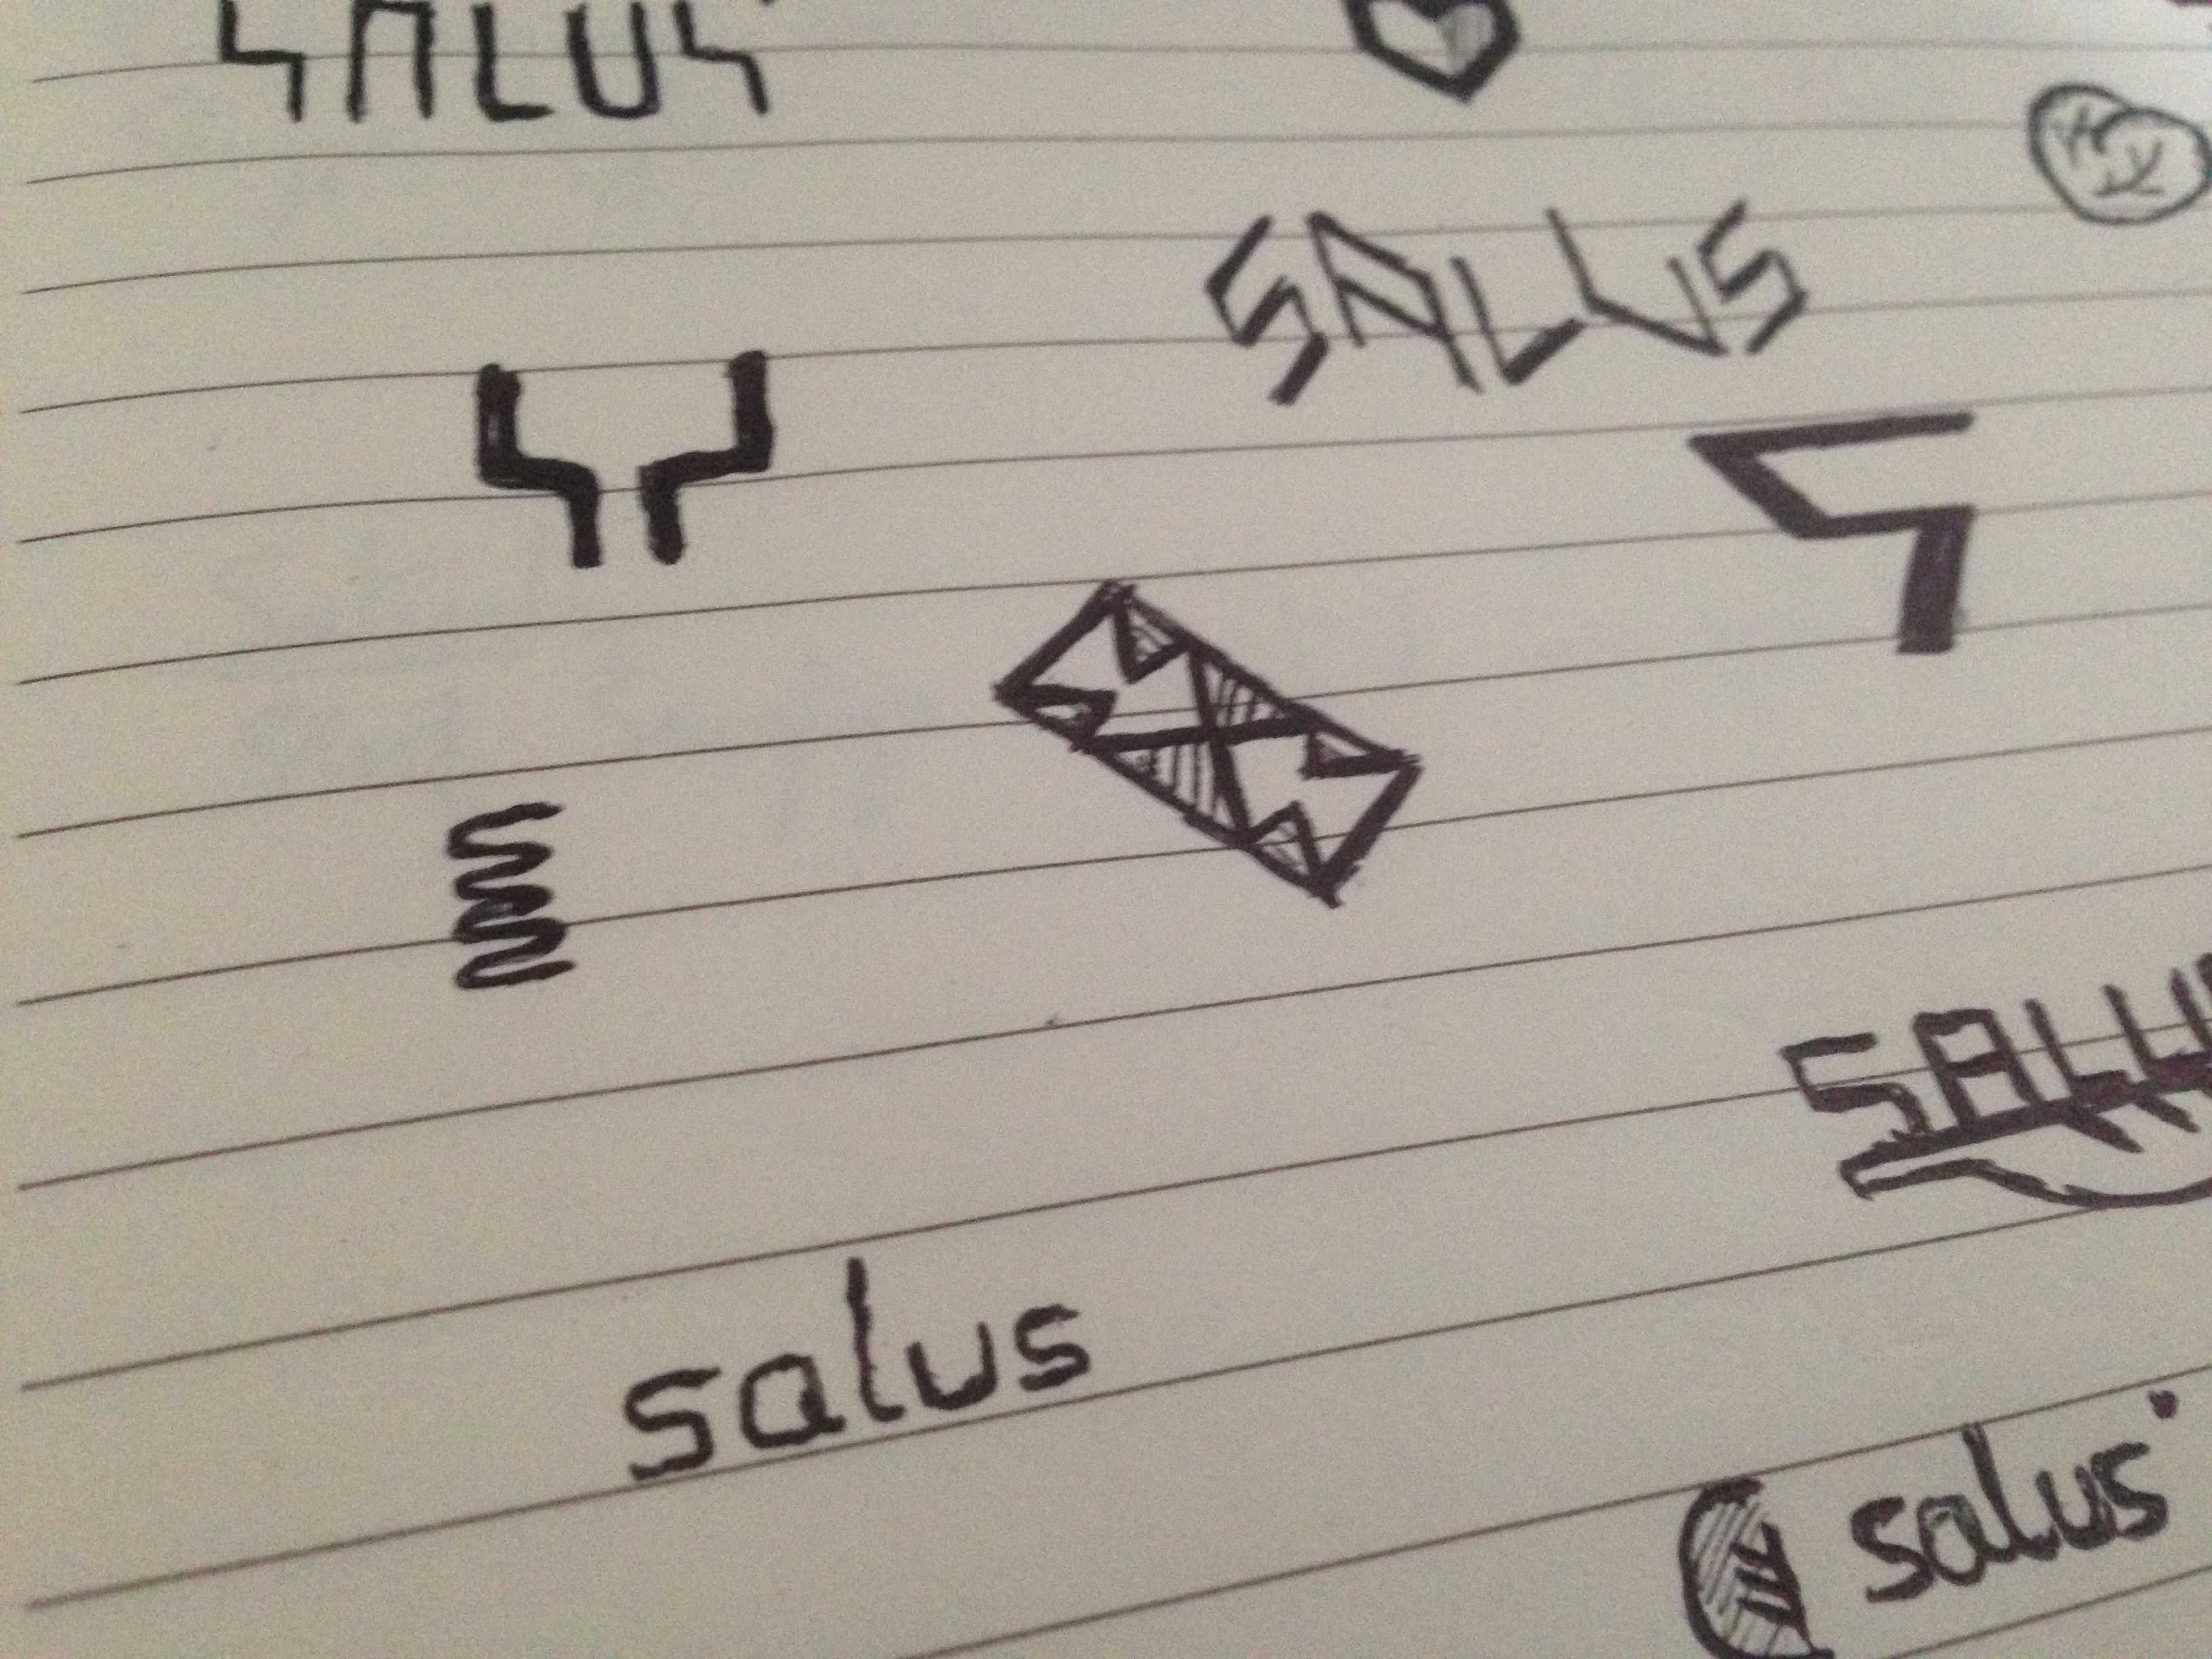 SALUS
SALUS
SALU
salus
salus